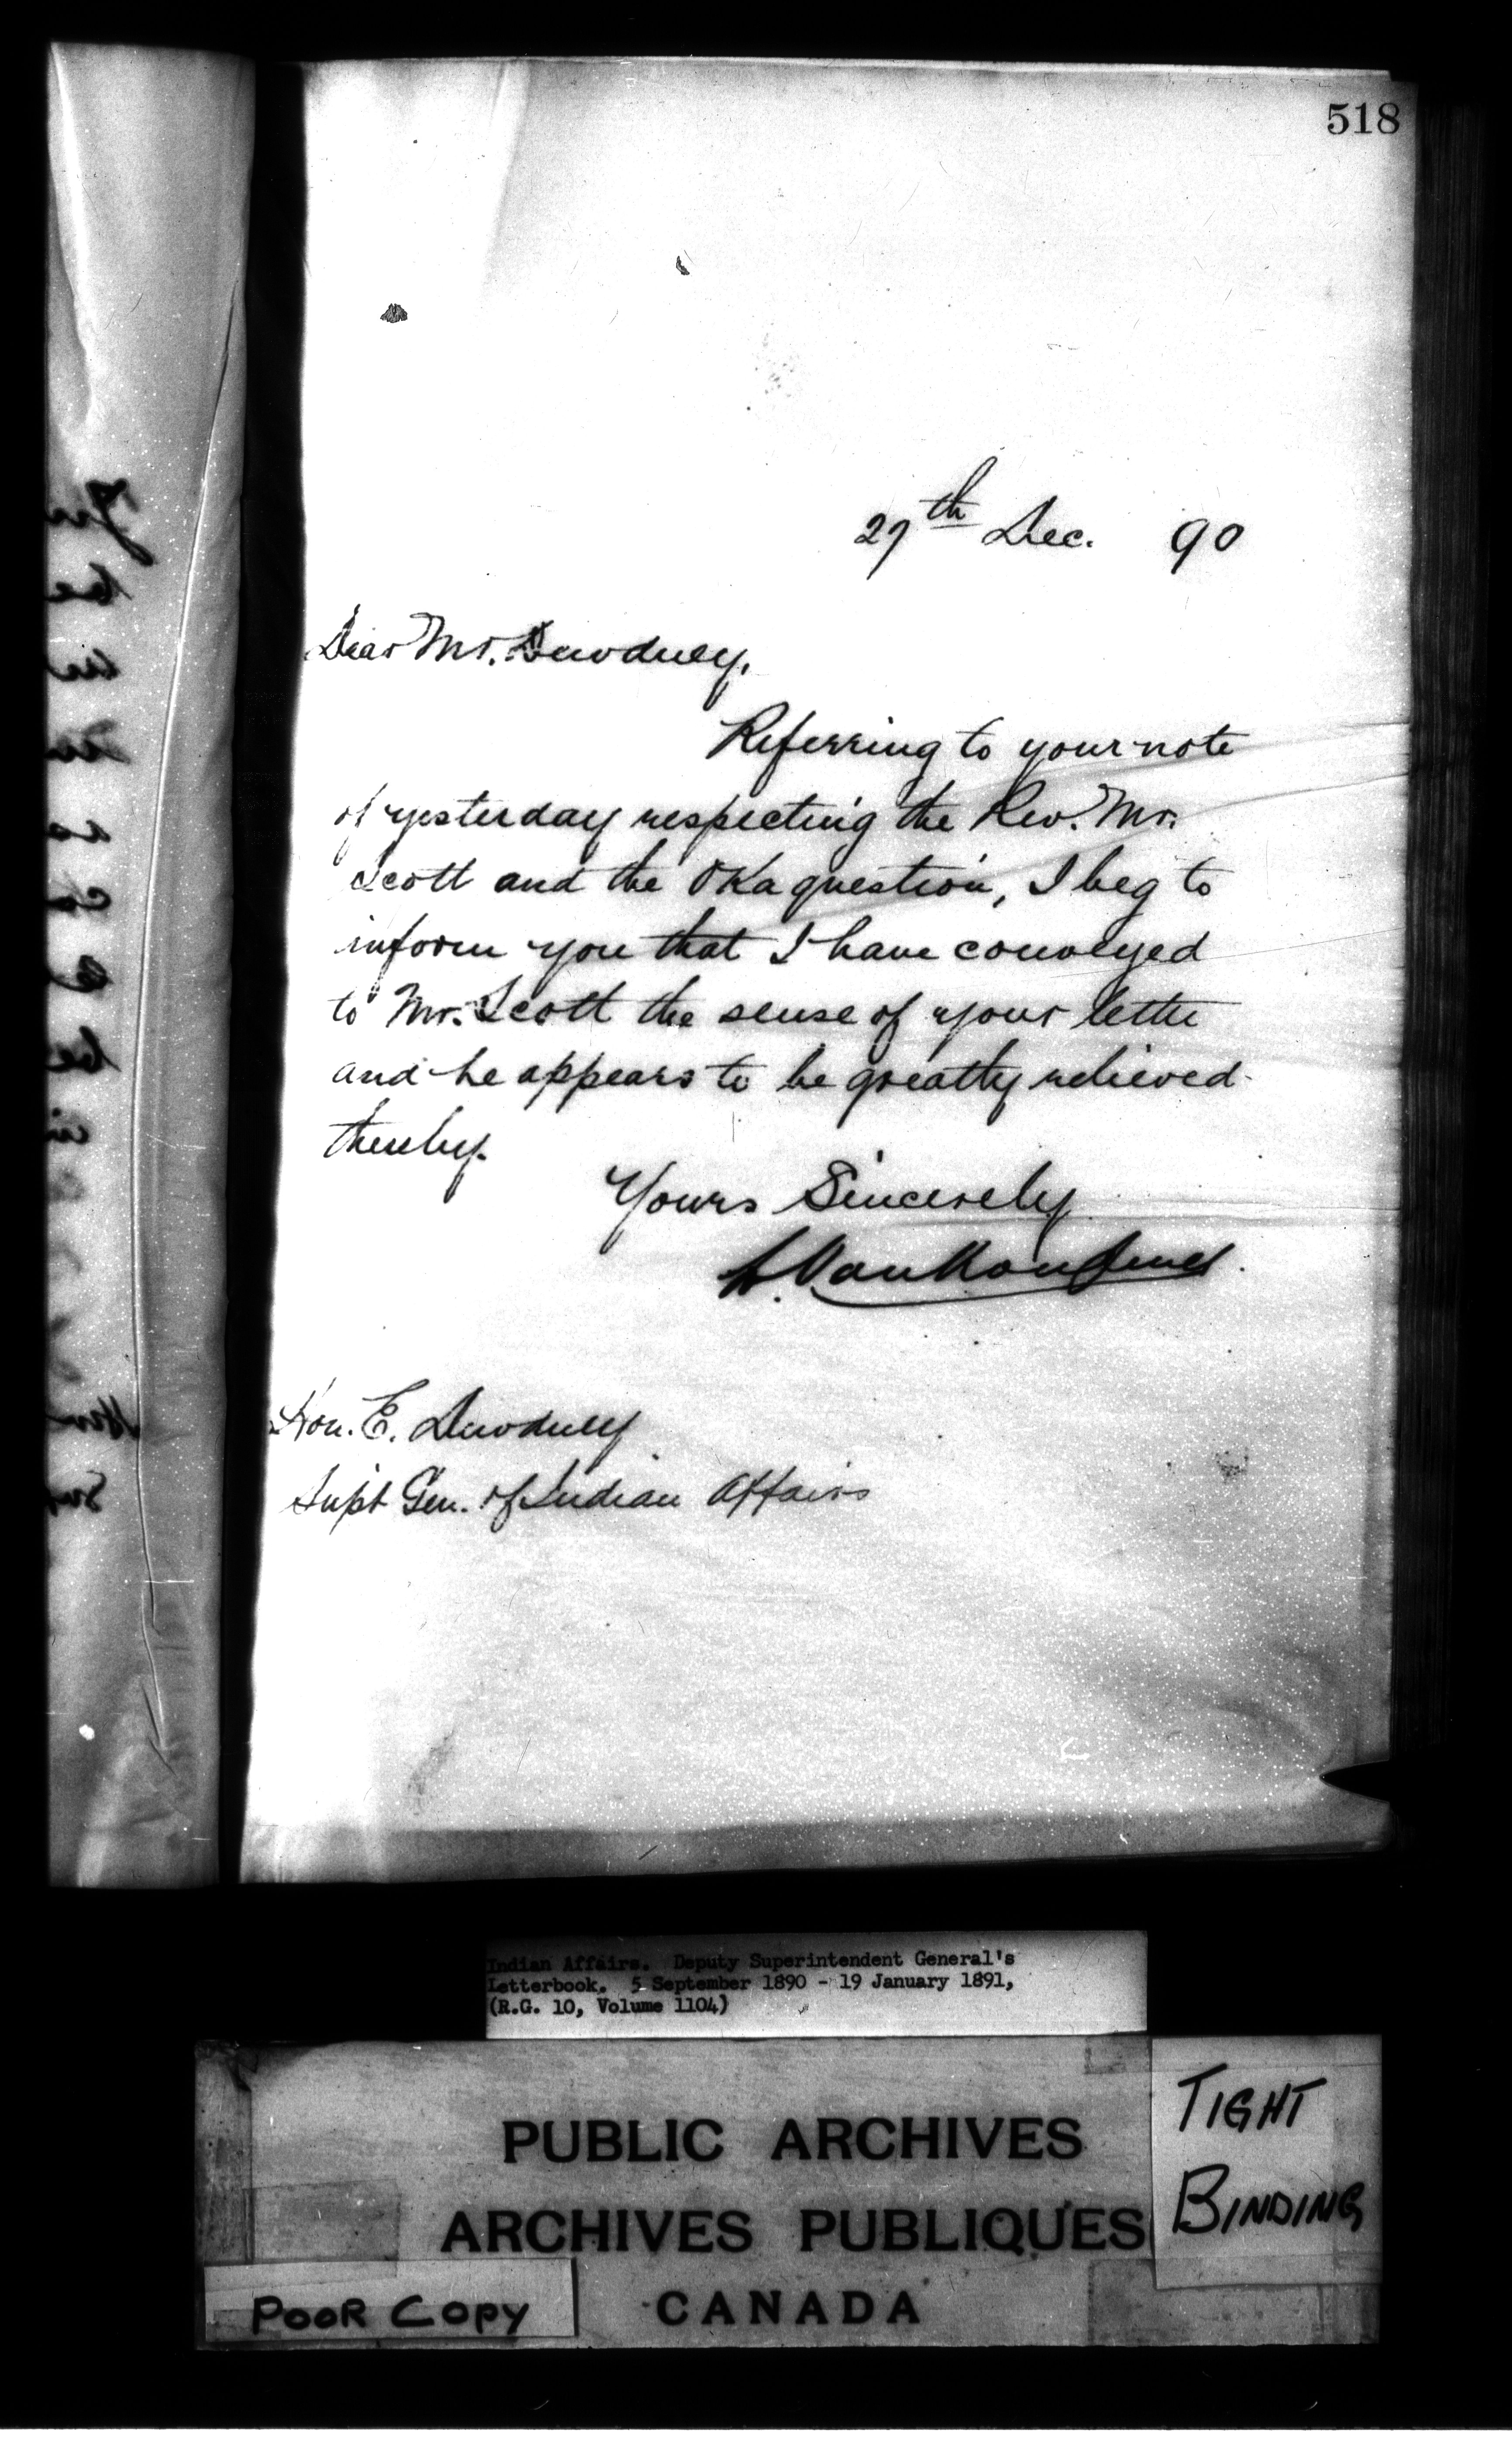 518
27th Dec. 90
Dear Mr. Dewdney,
Referring to your note
of yesterday respecting the Rev. Mr.
Scott and the Oka question, I beg to
inform you that I have conveyed
to Mr. Scott the sense of your letter
and he appears to be greatly relieved
thereby.
Yours Sincerely
L. Vankoughnet
Hon. E. Dewdney
Supt Gen. of Indian Affairs
Indian Affairs. Deputy Superintendent General's
Letterbook, 5 September 1890 - 19 January 1891,
(R.G. 10, Volume 1104)
PUBLIC ARCHIVES
ARCHIVES PUBLIQUES
CANADA
TIGHT
BINDING
POOR COPY